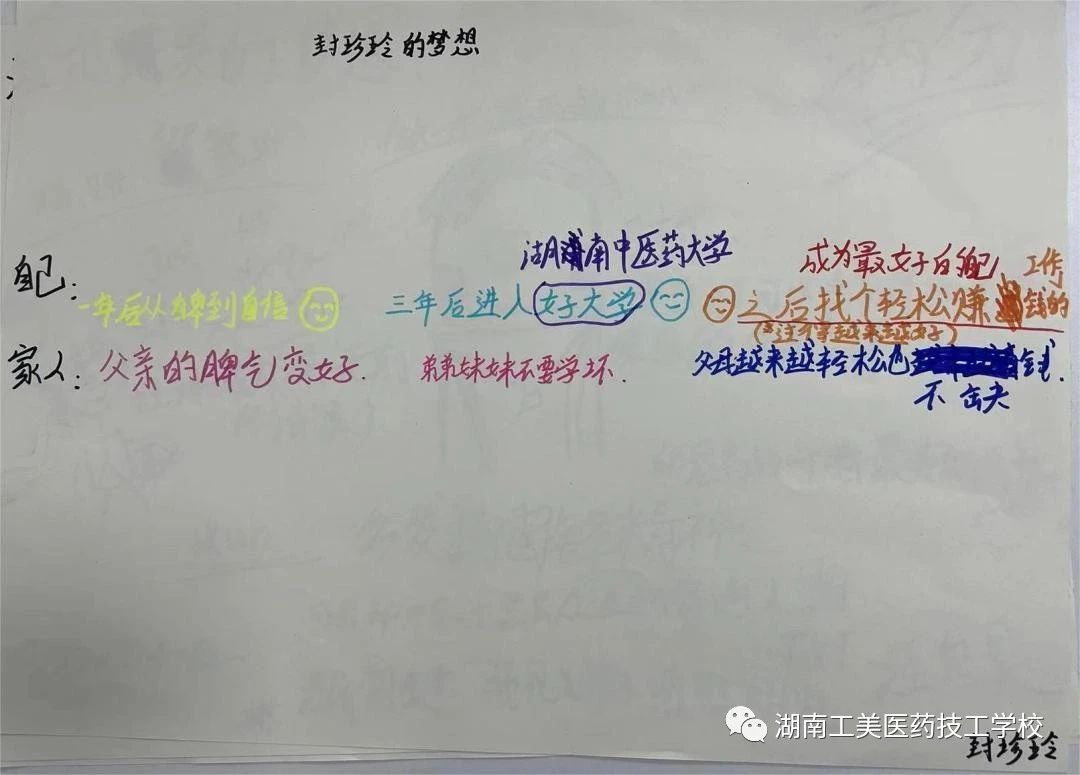 封珍玲的梦想
湖南中医药大学
成为最好自己
自己：一年后从自卑到自信 三年后进入好大学 之后找个轻松赚钱的工作
(关注力等越来越好)
家人：父亲的脾气变好. 弟弟妹妹不要学坏. 父母越来越轻松也不缺钱.
湖南工美医药技工学校
封珍玲